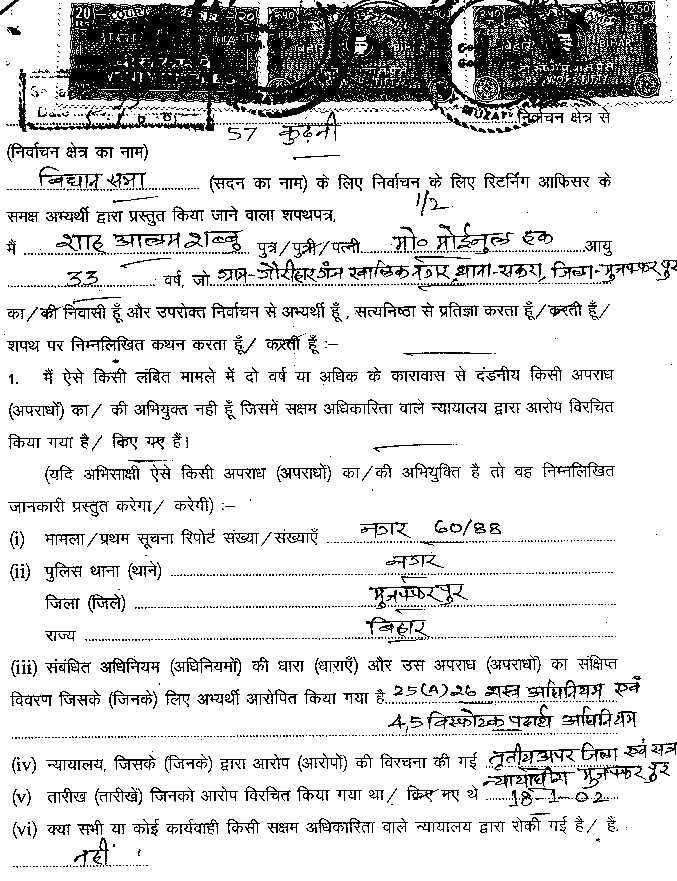 20 250 250
57 कुढ़नी निर्वाचन क्षेत्र से
(निर्वाचन क्षेत्र का नाम)
विधान सभा (सदन का नाम) के लिए निर्वाचन के लिए रिटर्निंग आफिसर के
1/2
समक्ष अभ्यर्थी द्वारा प्रस्तुत किया जाने वाला शपथपत्र,
मैं शाह आलम शब्बु पुत्र/पुत्री/पत्नी मो० मोईनुल हक आयु
33 वर्ष, जो ग्राम-गौरीहार नगर, थाना-सकरा, जिला-मुजफ्फरपुर
का/की निवासी हूँ और उपरोक्त निर्वाचन से अभ्यर्थी हूँ, सत्यनिष्ठा से प्रतिज्ञा करता हूँ/करती हूँ/
शपथ पर निम्नलिखित कथन करता हूँ/ करती हूँ :–
1. मैं ऐसे किसी लंबित मामले में दो वर्ष या अधिक के कारावास से दंडनीय किसी अपराध
(अपराधों) का/ की अभियुक्त नही हूँ जिसमें सक्षम अधिकारिता वाले न्यायालय द्वारा आरोप विरचित
किया गया है/ किए गए हैं।
(यदि अभिसाक्षी ऐसे किसी अपराध (अपराधों) का/की अभियुक्ति है तो वह निम्नलिखित
जानकारी प्रस्तुत करेगा/ करेगी) :–
(i) मामला/प्रथम सूचना रिपोर्ट संख्या/संख्याएँ नगर 60/88
(ii) पुलिस थाना (थाने) नगर
जिला (जिले) मुजफ्फरपुर
राज्य बिहार
(iii) संबंधित अधिनियम (अधिनियमों) की धारा (धाराएँ) और उस अपराध (अपराधों) का संक्षिप्त
विवरण जिसके (जिनके) लिए अभ्यर्थी आरोपित किया गया है 25(A) 26 शस्त्र अधिनियम एवं
4,5 विस्फोटक पदार्थ अधिनियम
(iv) न्यायालय, जिसके (जिनके) द्वारा आरोप (आरोपों) की विरचना की गई तृतीय अपर जिला एवं सत्र
न्यायाधीश मुजफ्फरपुर
(v) तारीख (तारीखें) जिनको आरोप विरचित किया गया था/ किए गए थे 18-1-02
(vi) क्या सभी या कोई कार्यवाही किसी सक्षम अधिकारिता वाले न्यायालय द्वारा रोकी गई है/ हैं.
नहीं